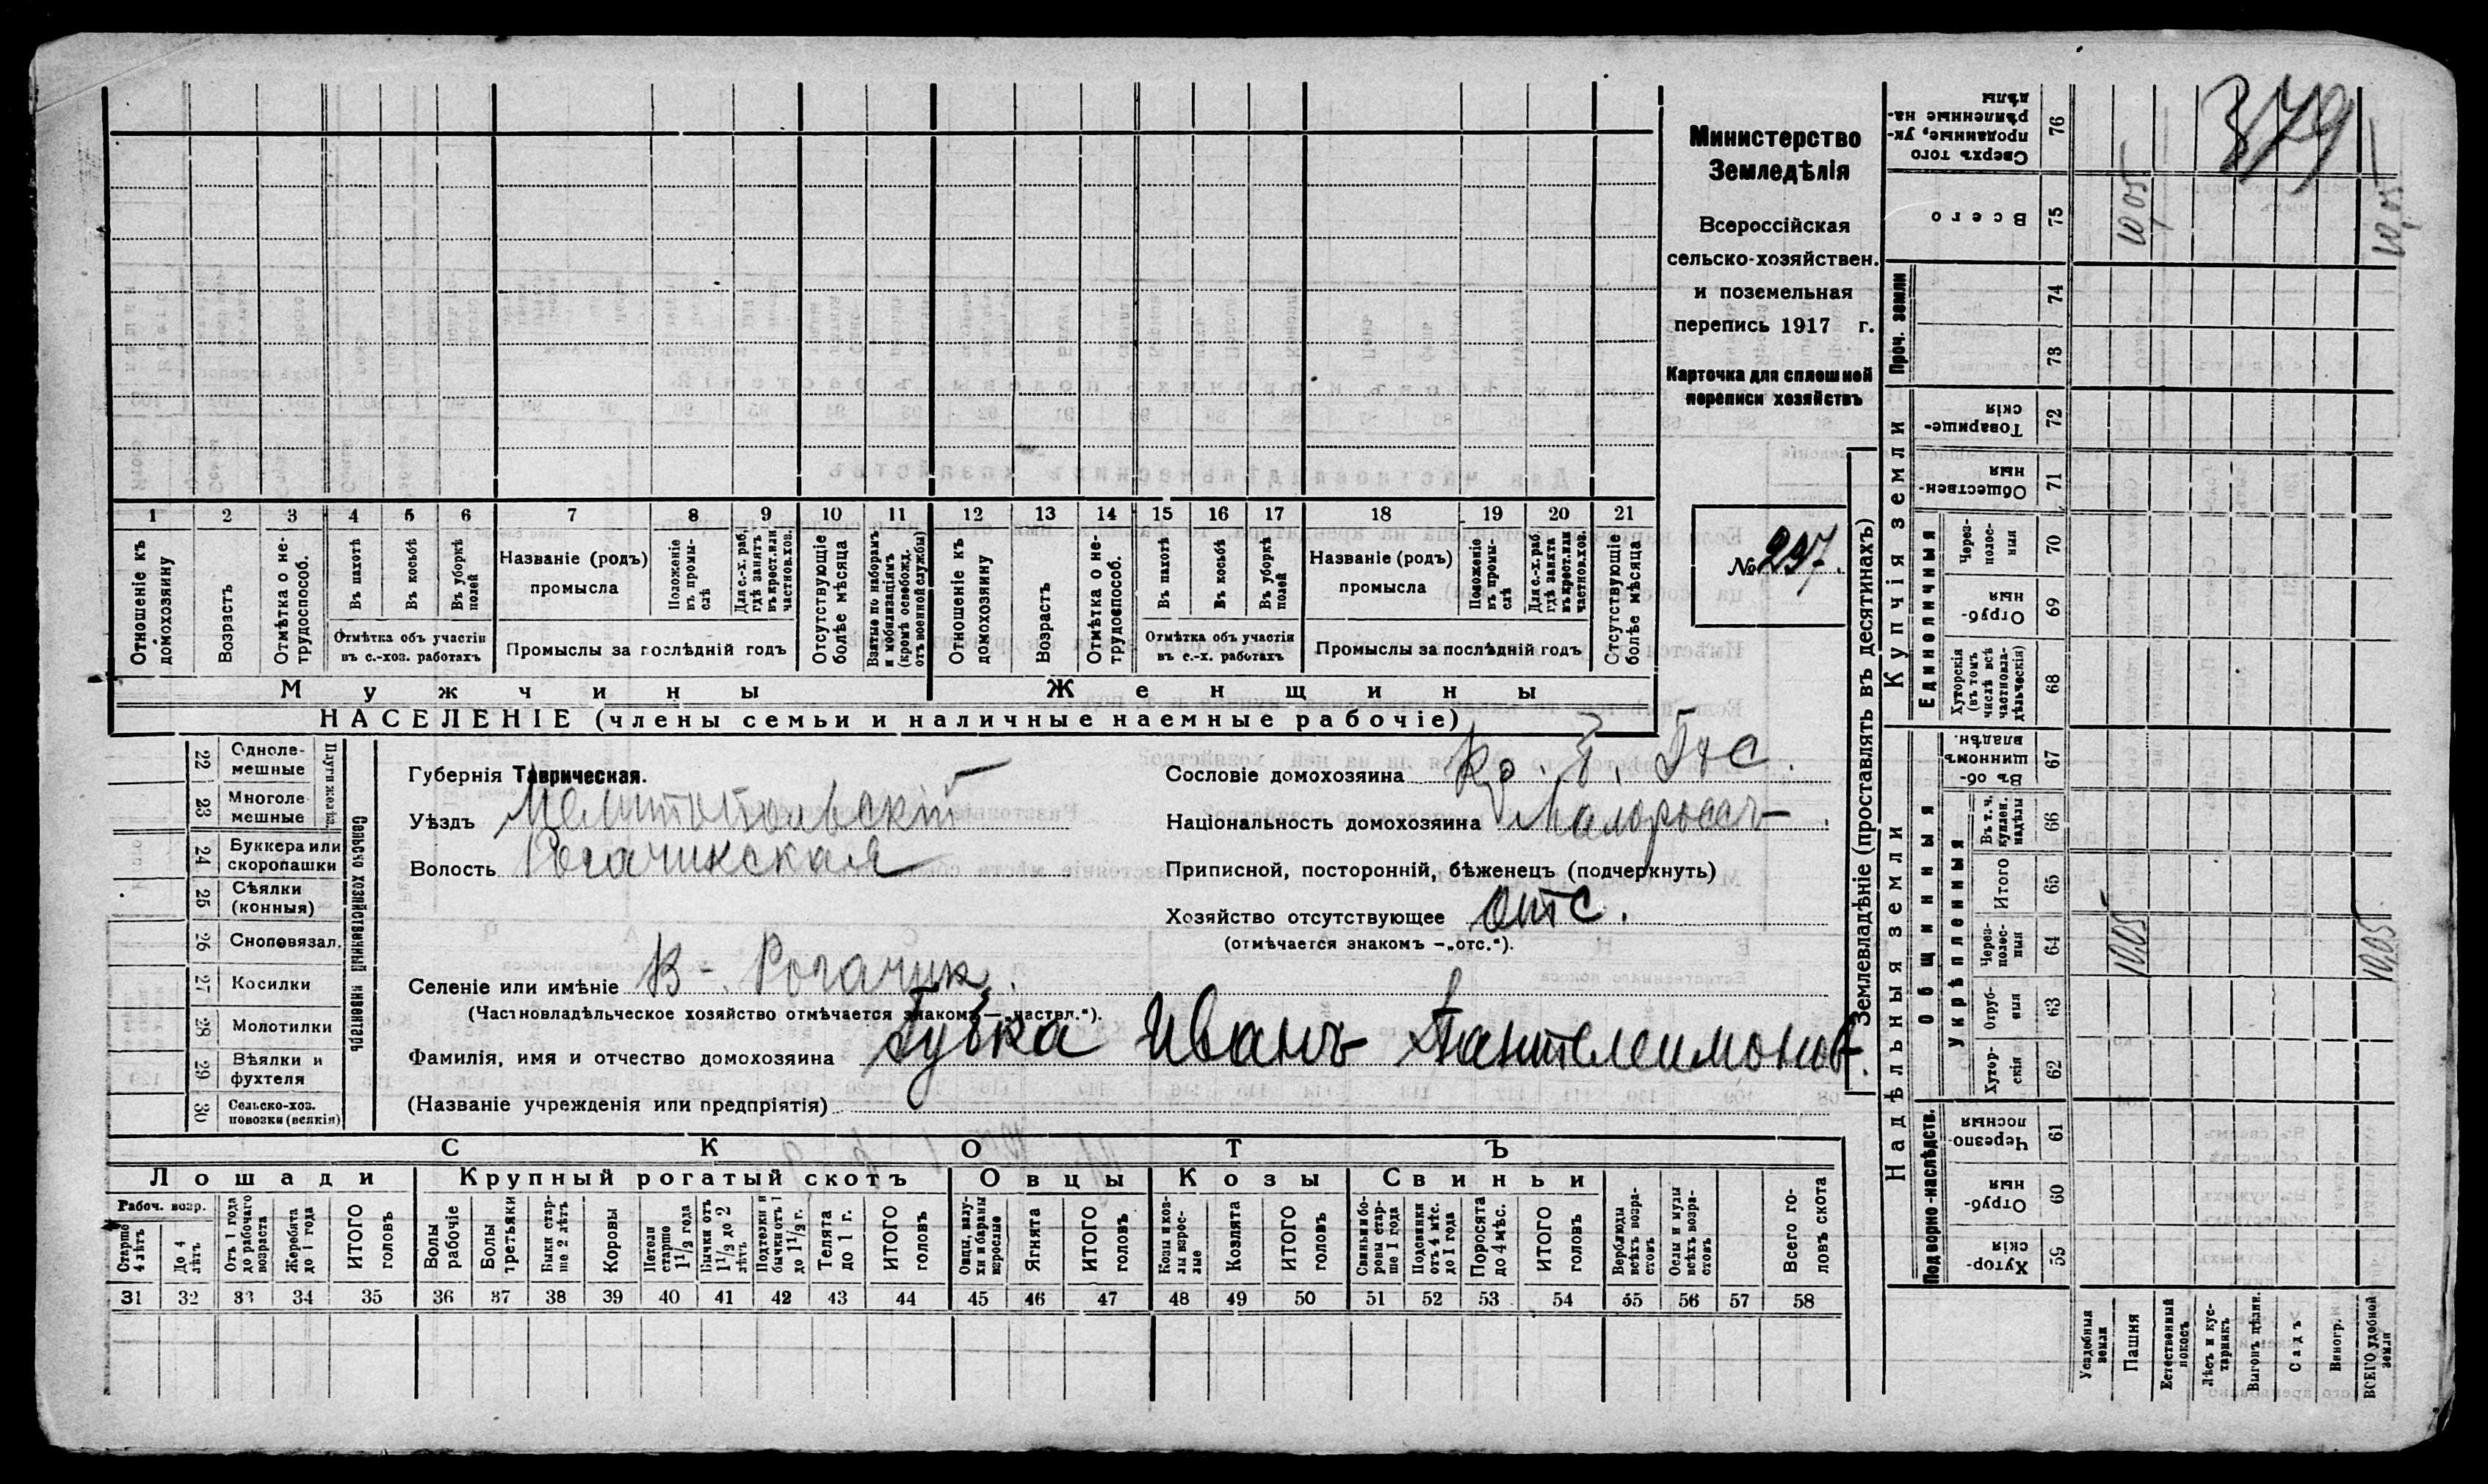 379
Министерство
Земледѣлія
Всероссійская
сельско-хозяйствен.
и поземельная
перепись 1917 г.
Карточка для сплошной
переписи хозяйствъ
№ 297.
1 2 3 4 5 6 7 8 9 10 11 12 13 14 15 16 17 18 19 20 21
Отношеніе къ домохозяину
Возрастъ
Отмѣтка о не-трудоспособ.
Въ пахотѣ
Въ косьбѣ
Въ уборкѣ полей
Отмѣтка объ участіи въ с.-хоз. работахъ
Названіе (родъ) промысла
Положеніе въ промы-слѣ
Для с.-х. раб. гдѣ занятъ въ крест. или частнов. хоз.
Промыслы за послѣдній годъ
Отсутствующіе болѣе мѣсяца
Взятые по наборамъ и мобилизаціямъ (кромѣ освобожд. отъ военной службы)
Отношеніе къ домохозяину
Возрастъ
Отмѣтка о не-трудоспособ.
Въ пахотѣ
Въ косьбѣ
Въ уборкѣ полей
Отмѣтка объ участіи въ с.-х. работахъ
Названіе (родъ) промысла
Положеніе въ промы-слѣ
Для с.-х. раб. гдѣ занята въ крест. или частнов. хоз.
Промыслы за послѣдній годъ
Отсутствующіе болѣе мѣсяца
Мужчины
Женщины
НАСЕЛЕНІЕ (члены семьи и наличные наемные рабочіе)
22 Одноле-мешные
23 Многоле-мешные
24 Буккера или скоропашки
25 Сѣялки (конныя)
26 Сноповязал.
27 Косилки
28 Молотилки
29 Вѣялки и фухтеля
30 Сельско-хоз. повозки (всякія)
Сельско хозяйственный инвентарь
Губернія Таврическая.
Уѣздъ Мелитопольскій
Волость Рогачикская
Селеніе или имѣніе В-. Рогачик.
(Частновладѣльческое хозяйство отмѣчается знакомъ —„частвл.“).
Фамилія, имя и отчество домохозяина Губка Иванъ Пантелеимонов.
(Названіе учрежденія или предпріятія)
Сословіе домохозяина
Національность домохозяина Малороссъ
Приписной, посторонній, бѣженецъ (подчеркнуть)
Хозяйство отсутствующее отс.
(отмѣчается знакомъ —„отс.“).
СКОТЪ
Лошади
Крупный рогатый скотъ
Овцы
Козы
Свиньи
Рабоч. возр.
Старше 4 лѣтъ
До 4 лѣтъ
Отъ 1 года до рабочаго возраста
Жеребята до 1 года
ИТОГО головъ
Волы рабочіе
Волы третьяки
Быки стар-ше 2 лѣтъ
Коровы
Нетели старше 1 1/2 года
Бычки отъ 1 1/2 до 2 лѣтъ
Подтелки и бычки отъ 1 до 1 1/2 г.
Телята до 1 г.
ИТОГО головъ
Овцы, валу-хи и бараны взрослые
Ягнята
ИТОГО головъ
Козы и коз-лы взрос-лые
Козлята
ИТОГО головъ
Свиньи и бо-ровы стар-ше 1 года
Подсвинки отъ 4 мѣс. до 1 года
Поросята до 4 мѣс.
ИТОГО головъ
Верблюды всѣхъ возра-стовъ
Ослы и мулы всѣхъ возра-стовъ
Всего го-ловъ скота
31 32 33 34 35 36 37 38 39 40 41 42 43 44 45 46 47 48 49 50 51 52 53 54 55 56 57 58
Землевладѣніе (проставлять въ десятинахъ)
Надѣльныя земли
Купчія земли
Проч. земли
Подворно-наслѣдств.
Общинныя
Укрѣпленныя
Единоличныя
Сверхъ того проданные, ук-рѣпленные на-дѣлы 76
Всего 75 10,05 10,05
74
73
Товарище-скія 72
Обществен-ныя 71
Через-полос-ныя 70
Отруб-ныя 69
Хуторскія (въ томъ числѣ всѣ частновла-дѣльческія) 68
Въ об-щинномъ владѣн. 67
Въ т. ч. куплен. надѣлы 66
Итого 65
Через-полос-ныя 64 10,05 10,05
Отруб-ныя 63
Хутор-скія 62
Черезпо-лосныя 61
Отруб-ныя 60
Хутор-скія 59
Усадебныя земли
Пашня
Естественный покосъ
Лѣсъ и кус-тарникъ
Выгонъ цѣлин.
Садъ
Виногр.
ВСЕГО удобной земли